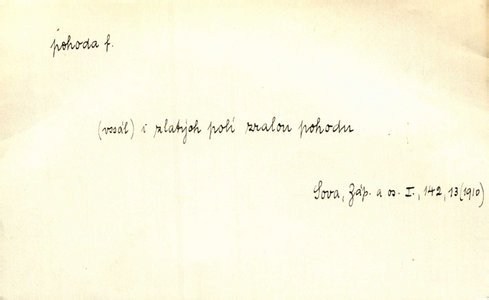 pohoda f.
(vssál) i zlatých polí zralou pohodu
Sova, Záp. a os. I., 142, 13 (1910)